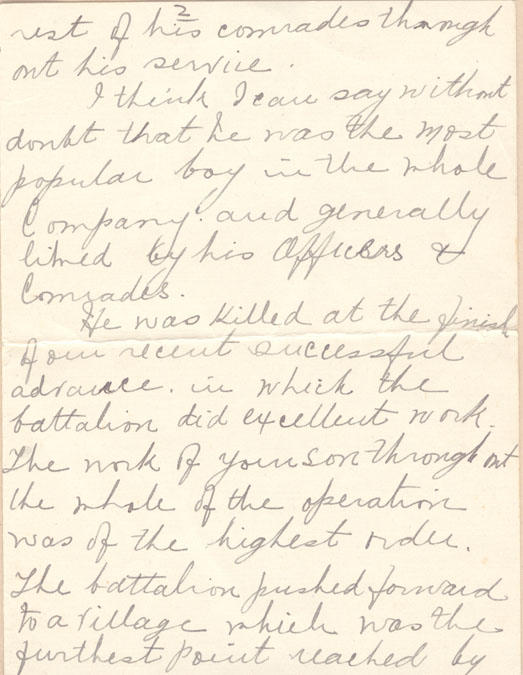 2
rest of his comrades through
out his service.
I think I can say without
doubt that he was the most
popular boy in the whole
Company. and generally
liked by his Officers &
Comrades.
He was killed at the finish
of our recent successful
advance. in which the
battalion did excellent work.
The work of your son through out
the whole of the operation
was of the highest order.
The battalion pushed forward
to a village which was the
furthest point reached by